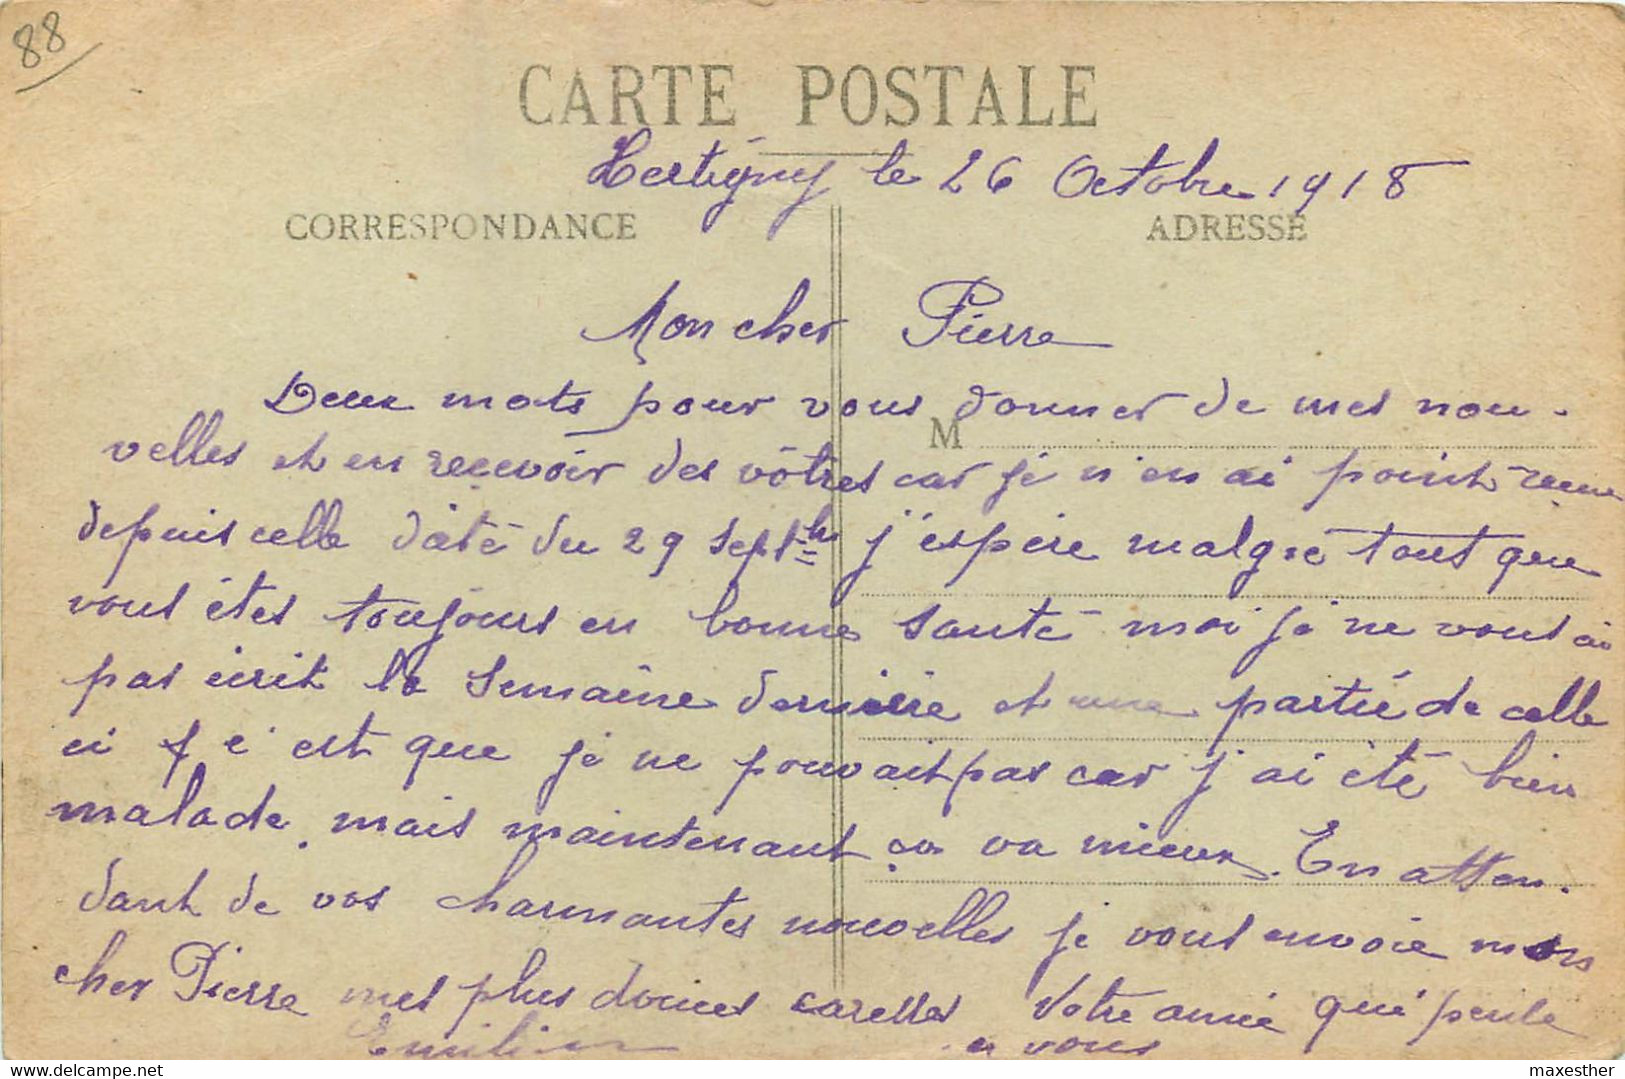 88
CARTE POSTALE
Hertigny le 26 Octobre 1918
CORRESPONDANCE
ADRESSE
Mon cher Pierre
Deux mots pour vous donner de mes nou-
M
velles et en recevoir des vôtres car je n'en ai point recue
depuis celle daté du 29 Septbre j'espère malgré tout que
vous êtes toujours en bonne santé moi je ne vous ai
pas écrit la semaine dernière et une partie de celle
ci c'est que je ne pouvait pas car j'ai été bien
malade, mais maintenant ça va mieux. En atten-
dant de vos charmantes nouvelles je vous envoie mon
cher Pierre mes plus douces caresses Votre amie qui pense
Emilie
a vous
delcampe.net
maxesther